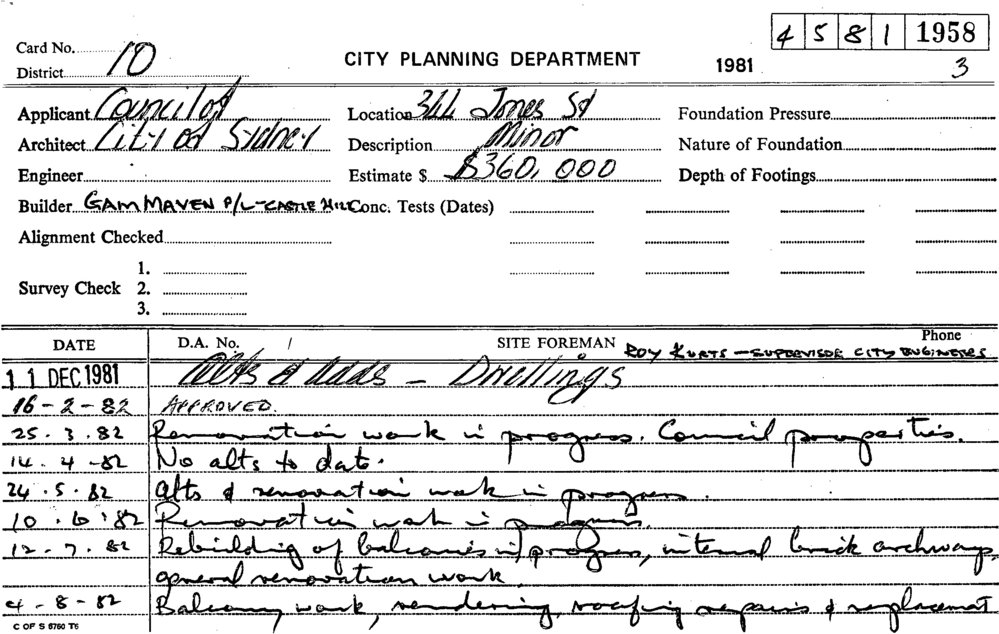 4 5 8 1 1958
Card No. 10
District
CITY PLANNING DEPARTMENT 1981 3
Applicant Council of Location 344 Jones St Foundation Pressure
Architect City of Sydney Description Minor Nature of Foundation
Engineer Estimate $ $360,000 Depth of Footings
Builder GAMMAVEN P/L - CASTLE HILL Conc. Tests (Dates)
Alignment Checked
1.
Survey Check 2.
3.
DATE D.A. No. SITE FOREMAN ROY KURTS - SUPERVISOR CITY ENGINEERS Phone
11 DEC 1981 Alts & Adds - Dwellings
16-2-82 APPROVED.
25.3.82 Renovation work in progress. Council properties.
14.4-82 No alts to date.
24.5.82 Alts & renovation work in progress.
10.6.82 Renovation work in progress.
12.7.82 Rebuilding of balconies in progress, internal brick archways,
general renovation work.
4-8-82 Balcony work, rendering, roofing repairs & replacemat
C OF S 6760 T6